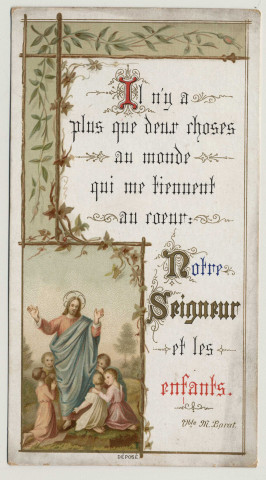 Il n'y a
plus que deux choses
au monde
qui me tiennent
au coeur:
Notre
Seigneur
et les
enfants.
DÉPOSÉ